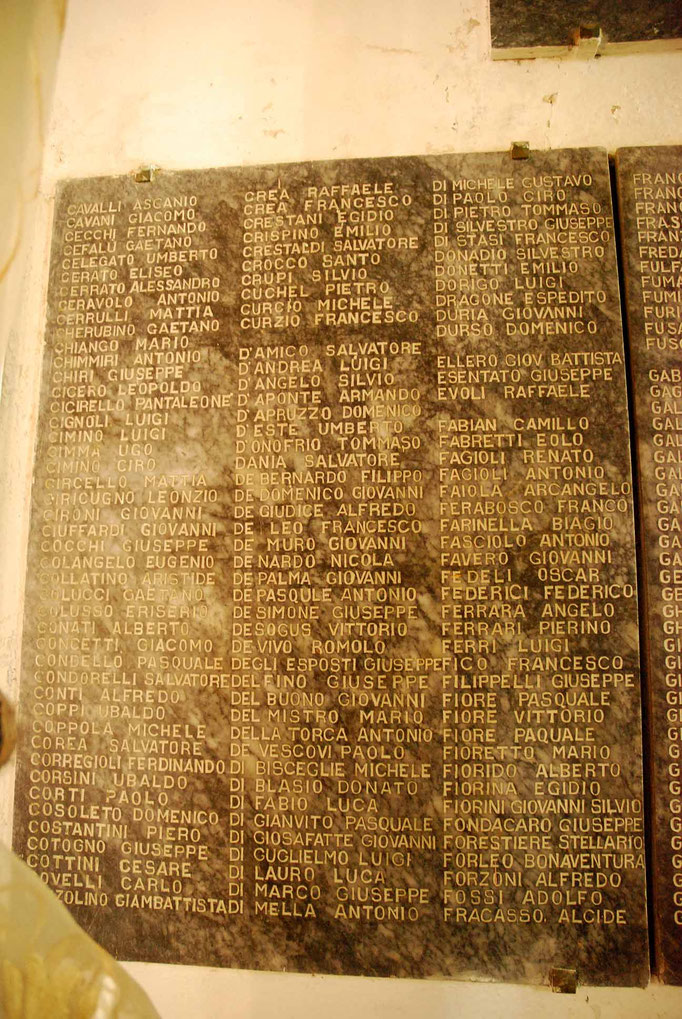 CAVALLI ASCANIO
CAVANI GIACOMO
CECCHI FERNANDO
CEFALÙ GAETANO
CELEGATO UMBERTO
CERATO ELISEO
CERRATO ALESSANDRO
CERAVOLO ANTONIO
CERRULLI MATTIA
CHERUBINO GAETANO
CHIANGO MARIO
CHIMMIRI ANTONIO
CHIRI GIUSEPPE
CICERO LEOPOLDO
CICIRELLO PANTALEONE
CIGNOLI LUIGI
CIMINO LUIGI
CIMMA UGO
CIMINO CIRO
CIRCELLO MATTIA
CIRICUGNO LEONZIO
CIRONI GIOVANNI
CIUFFARDI GIOVANNI
COCCHI GIUSEPPE
COLANGELO EUGENIO
COLLATINO ARISTIDE
COLUCCI GAETANO
COLUSSO ERISERIO
CONATI ALBERTO
CONCETTI GIACOMO
CONDELLO PASQUALE
CONDORELLI SALVATORE
CONTI ALFREDO
COPPI UBALDO
COPPOLA MICHELE
COREA SALVATORE
CORREGIOLI FERDINANDO
CORSINI UBALDO
CORTI PAOLO
COSOLETO DOMENICO
COSTANTINI PIERO
COTOGNO GIUSEPPE
COTTINI CESARE
CARLO
GIAMBATTISTA
CREA RAFFAELE
CREA FRANCESCO
CRESTANI EGIDIO
CRISPINO EMILIO
CRESTALDI SALVATORE
CROCCO SANTO
CRUPI SILVIO
CUCHEL PIETRO
CURCIO MICHELE
CURZIO FRANCESCO
D'AMICO SALVATORE
D'ANDREA LUIGI
D'ANGELO SILVIO
D'APONTE ARMANDO
D'APRUZZO DOMENICO
D'ESTE UMBERTO
D'ONOFRIO TOMMASO
DANIA SALVATORE
DE BERNARDO FILIPPO
DE DOMENICO GIOVANNI
DE GIUDICE ALFREDO
DE LEO FRANCESCO
DE MURO GIOVANNI
DE NARDO NICOLA
DE PALMA GIOVANNI
DE PASQULE ANTONIO
DE SIMONE GIUSEPPE
DESOGUS VITTORIO
DE VIVO ROMOLO
DEGLI ESPOSTI GIUSEPPE
DEL FINO GIUSEPPE
DEL BUONO GIOVANNI
DEL MISTRO MARIO
DELLA TORCA ANTONIO
DE VESCOVI PAOLO
DI BISCEGLIE MICHELE
DI BLASIO DONATO
DI FABIO LUCA
DI GIANVITO PASQUALE
DI GIOSAFATTE GIOVANNI
DI GUGLIELMO LUIGI
DI LAURO LUCA
DI MARCO GIUSEPPE
DI MELLA ANTONIO
DI MICHELE GUSTAVO
DI PAOLO CIRO
DI PIETRO TOMMASO
DI SILVESTRO GIUSEPPE
DI STASI FRANCESCO
DONADIO SILVESTRO
DONETTI EMILIO
DORIGO LUIGI
DRAGONE ESPEDITO
DURIA GIOVANNI
DURSO DOMENICO
ELLERO GIOV BATTISTA
ESENTATO GIUSEPPE
EVOLI RAFFAELE
FABIAN CAMILLO
FABRETTI EOLO
FAGIOLI RENATO
FAGIOLI ANTONIO
FAIOLA ARCANGELO
FERABOSCO FRANCO
FARINELLA BIAGIO
FASCIOLO ANTONIO
FAVERO GIOVANNI
FEDELI OSCAR
FEDERICI FEDERICO
FERRARA ANGELO
FERRARI PIERINO
FERRI LUIGI
FICO FRANCESCO
FILIPPELLI GIUSEPPE
FIORE PASQUALE
FIORE VITTORIO
FIORE PAQUALE
FIORETTO MARIO
FIORIDO ALBERTO
FIORINA EGIDIO
FIORINI GIOVANNI SILVIO
FONDACARO GIUSEPPE
FORESTIERE STELLARIO
FORLEO BONAVENTURA
FORZONI ALFREDO
FOSSI ADOLFO
FRACASSO ALCIDE